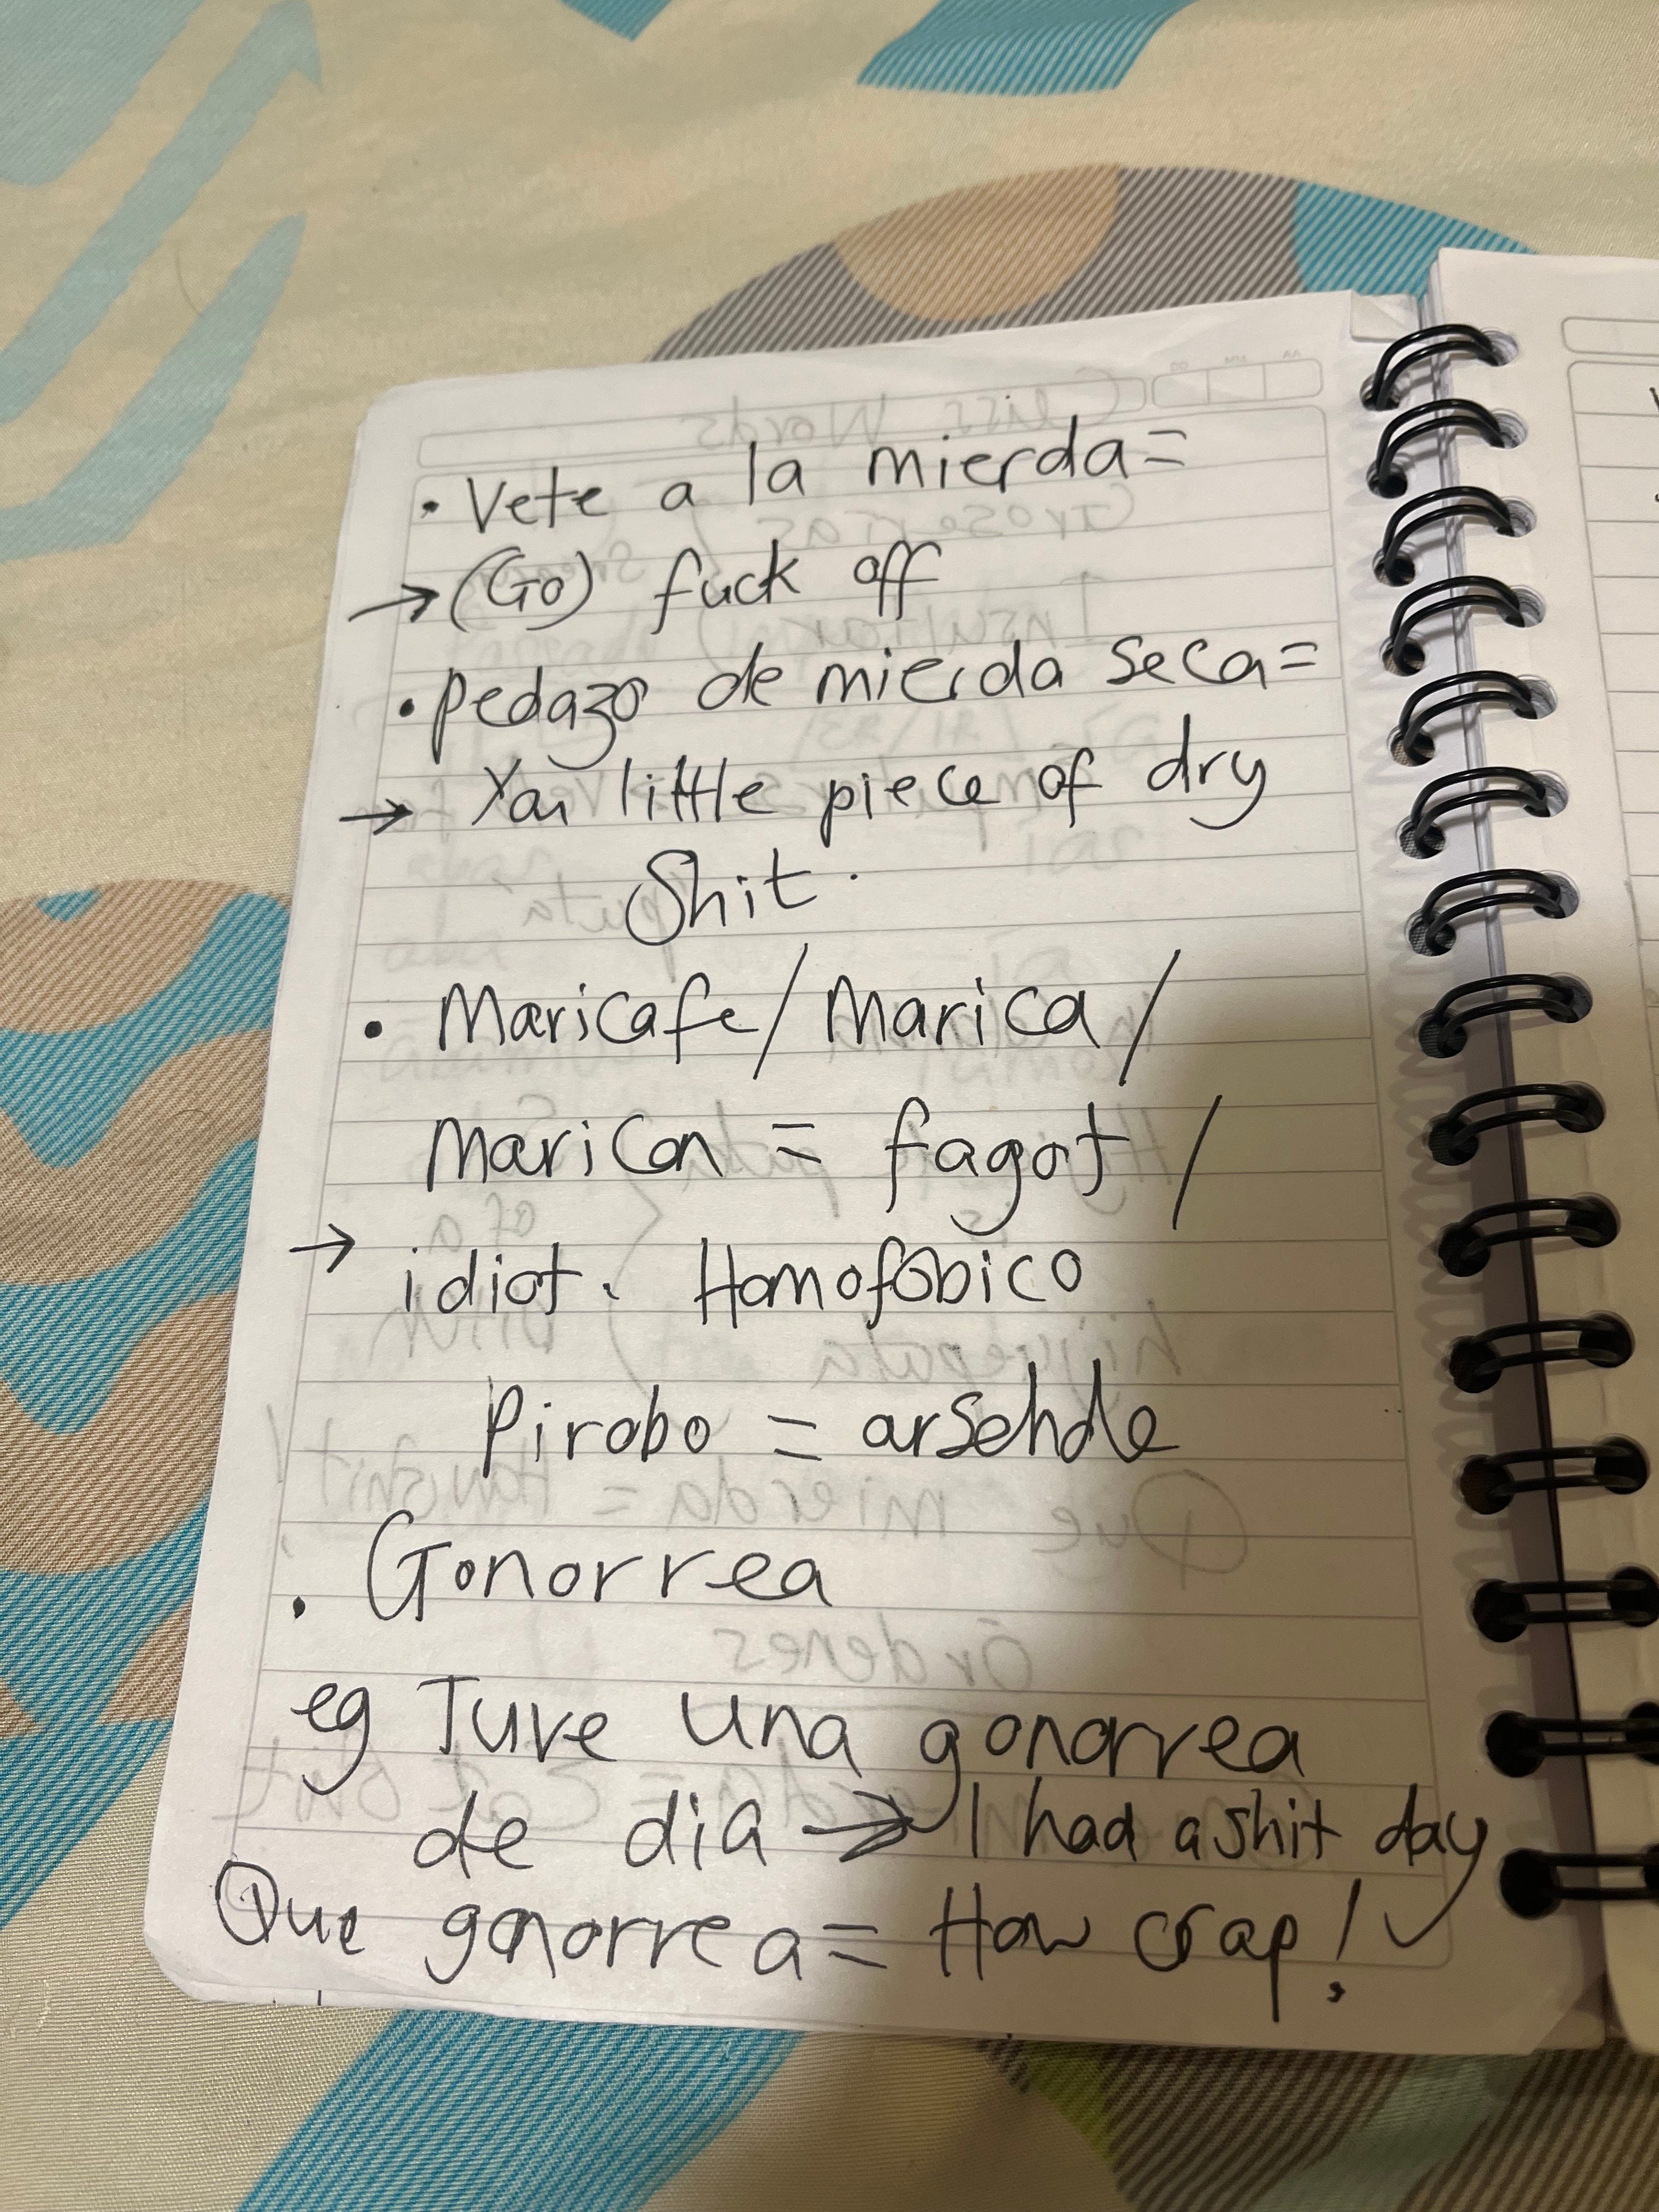 • Vete a la mierda=
→ (Go) fuck off
• Pedazo de mierda seca=
→ You little piece of dry
Shit.
• Maricafe/Marica/
Maricon = fagot /
→ idiot. Homofóbico
Pirobo = arsehole
• Gonorrea
eg Tuve una gonorrea
de dia → I had a shit day
Que gonorrea= How crap!